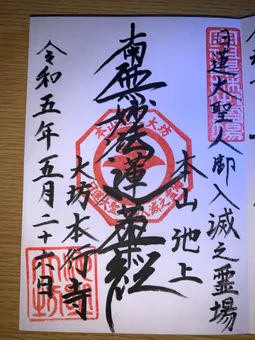 日蓮大聖人御入滅之霊場
本山池上
南無妙法蓮華経
大坊本行寺
令和五年五月二十六日